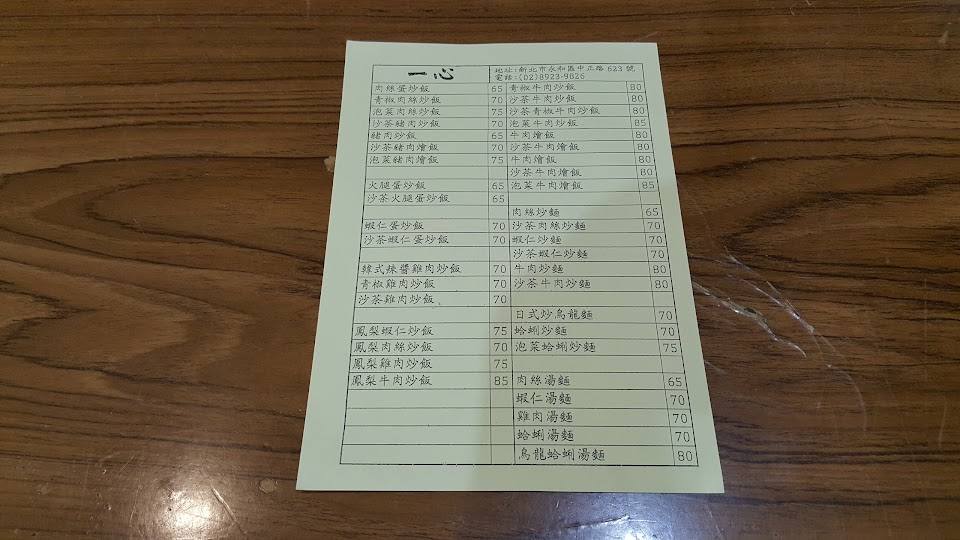 一心
地址:新北市永和區中正路623號
電話:(02)8923-9826
肉絲蛋炒飯 65 青椒牛肉炒飯 80
青椒肉絲炒飯 70 沙茶牛肉炒飯 80
泡菜肉絲炒飯 75 沙茶青椒牛肉炒飯 80
沙茶豬肉炒飯 70 泡菜牛肉炒飯 85
豬肉炒飯 65 牛肉燴飯 80
沙茶豬肉燴飯 70 沙茶牛肉燴飯 80
泡菜豬肉燴飯 75 牛肉燴飯 80
沙茶牛肉燴飯 80
火腿蛋炒飯 65 泡菜牛肉燴飯 85
沙茶火腿蛋炒飯 65
肉絲炒麵 65
蝦仁蛋炒飯 70 沙茶肉絲炒麵 70
沙茶蝦仁蛋炒飯 70 蝦仁炒麵 70
沙茶蝦仁炒麵 70
韓式辣醬雞肉炒飯 70 牛肉炒麵 80
青椒雞肉炒飯 70 沙茶牛肉炒麵 80
沙茶雞肉炒飯 70
日式炒烏龍麵 70
鳳梨蝦仁炒飯 75 蛤蜊炒麵 70
鳳梨肉絲炒飯 70 泡菜蛤蜊炒麵 75
鳳梨雞肉炒飯 75
鳳梨牛肉炒飯 85 肉絲湯麵 65
蝦仁湯麵 70
雞肉湯麵 70
蛤蜊湯麵 70
烏龍蛤蜊湯麵 80